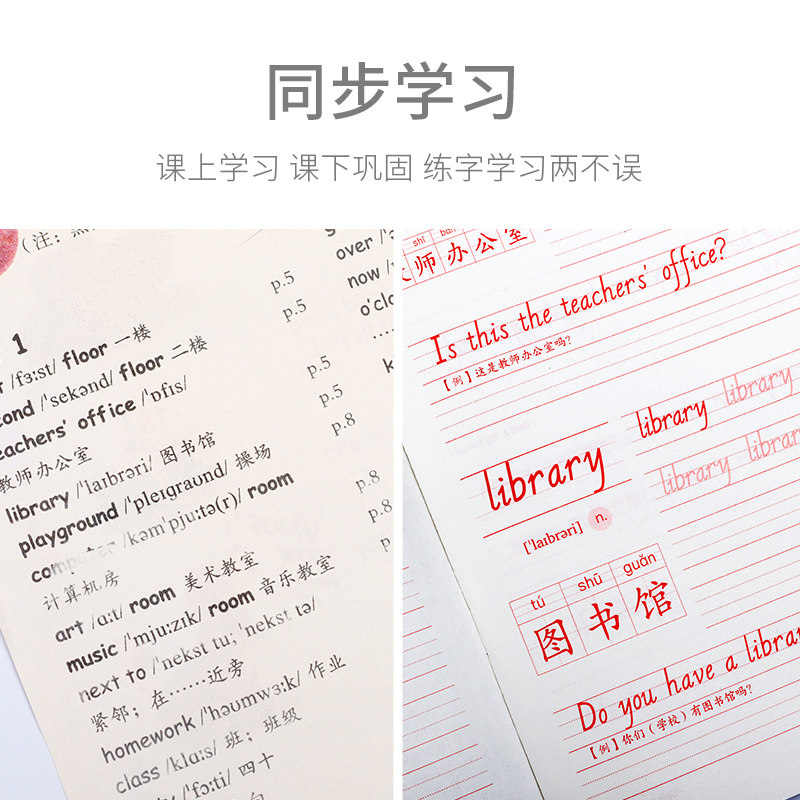 同步学习
课上学习 课下巩固 练字学习两不误
（注：
over /
now /
o'clo
1
/fɜːst/ floor 一楼 p.5
ond /'sekənd/ floor 二楼 p.5
eachers' office /'ɒfɪs/ p.5
教师办公室 p.5
library /'laɪbrəri/ 图书馆 p.8
playground /'pleɪgraʊnd/ 操场 p.8
computer /kəm'pjuːtə(r)/ room p.8
计算机房
art /ɑːt/ room 美术教室
music /'mjuːzɪk/ room 音乐教室
next to /'nekst tu; 'nekst tə/
紧邻；在……近旁
homework /'həʊmwɜːk/ 作业
class /klɑːs/ 班；班级
/'fɔːti/ 四十
shī bàn
师办公室
Is this the teachers' office?
【例】这是教师办公室吗？
library library library
library library
['laɪbrəri] n.
tú shū guǎn
图书馆
Do you have a librar
【例】你们（学校）有图书馆吗？